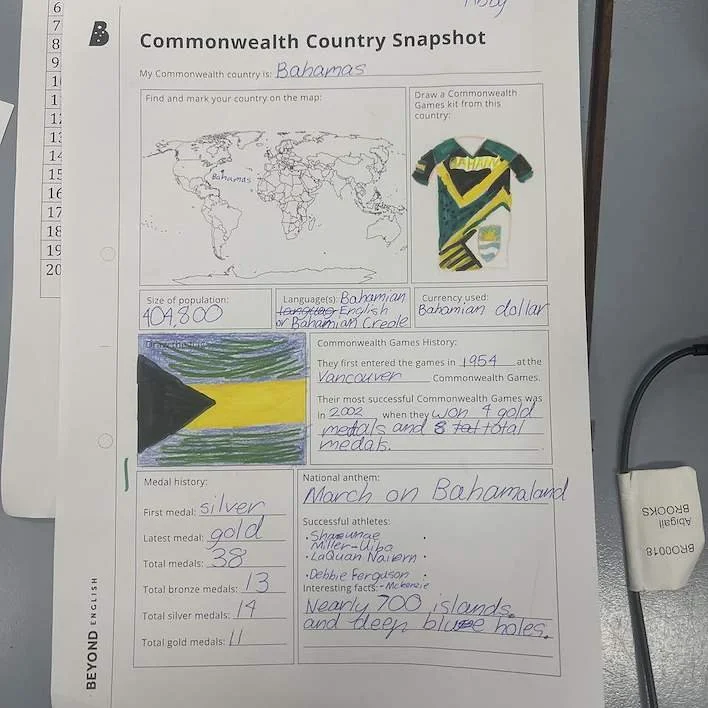 6
7
8
9
10
11
12
13
14
15
16
17
18
19
20
B
Commonwealth Country Snapshot
My Commonwealth country is: Bahamas
Find and mark your country on the map:
Bahamas
Draw a Commonwealth
Games kit from this
country:
BAHAMA
Size of population:
404,800
Language(s): Bahamian
English
or Bahamian Creole
Currency used:
Bahamian dollar
Commonwealth Games History:
They first entered the games in 1954 at the
Vancouver Commonwealth Games.
Their most successful Commonwealth Games was
in 2002 when they won 4 gold
medals and 8 total
medals.
Medal history:
First medal: silver
Latest medal: gold
Total medals: 38
Total bronze medals: 13
Total silver medals: 14
Total gold medals: 11
National anthem:
March on Bahamaland
Successful athletes:
• Shaunae
Miller-Uibo
• LaQuan Nairn
• Debbie Ferguson
- Mckenzie
Interesting facts:
Nearly 700 islands.
and deep blue holes.
BEYOND ENGLISH
BRO0018
Abigail
BROOKS